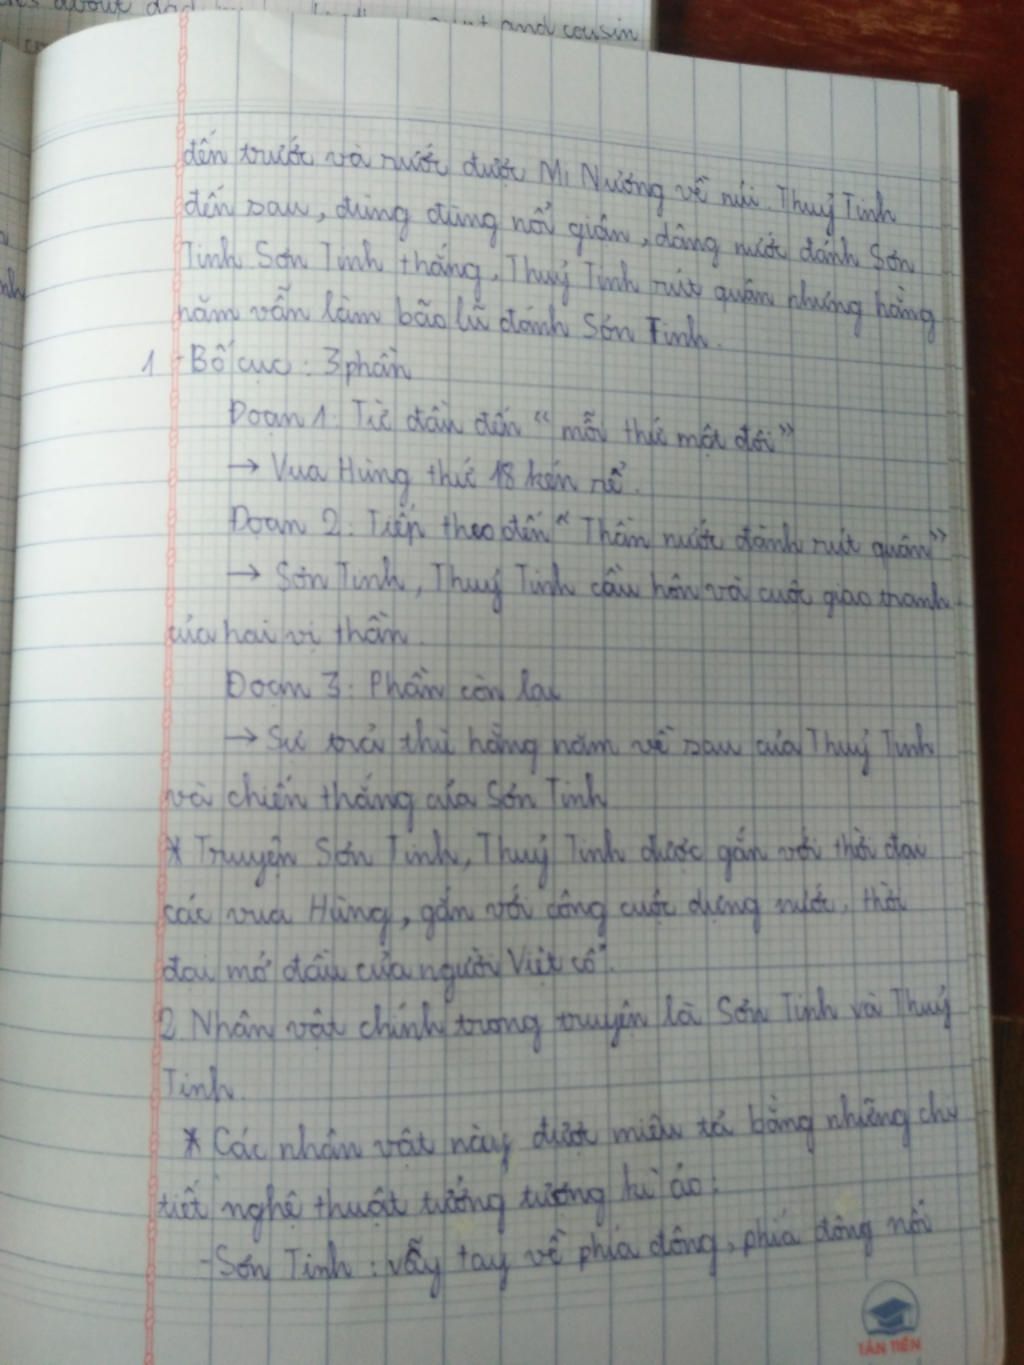 and cousin
đến trước và rước được Mị Nương về núi. Thuỷ Tinh
đến sau, đùng đùng nổi giận, dâng nước đánh Sơn
Tinh Sơn Tinh thắng, Thuỷ Tinh rút quân nhưng hằng
năm vẫn làm bão lũ đánh Sơn Tinh.
1 - Bố cục : 3 phần
Đoạn 1: Từ đầu đến "mỗi thứ một đôi"
→ Vua Hùng thứ 18 kén rể.
Đoạn 2: Tiếp theo đến "Thần nước đành rút quân"
→ Sơn Tinh, Thuỷ Tinh cầu hôn và cuộc giao tranh
của hai vị thần.
Đoạn 3: Phần còn lại
→ Sự trả thù hằng năm về sau của Thuỷ Tinh
và chiến thắng của Sơn Tinh
* Truyện Sơn Tinh, Thuỷ Tinh được gắn với thời đại
các vua Hùng, gắn với công cuộc dựng nước, thời
đại mở đầu của người Việt cổ.
2. Nhân vật chính trong truyện là Sơn Tinh và Thuỷ
Tinh.
* Các nhân vật này được miêu tả bằng những chi
tiết nghệ thuật tưởng tượng kì ảo:
- Sơn Tinh : vẫy tay về phía đông, phía đông nổi
TÂN TIẾN